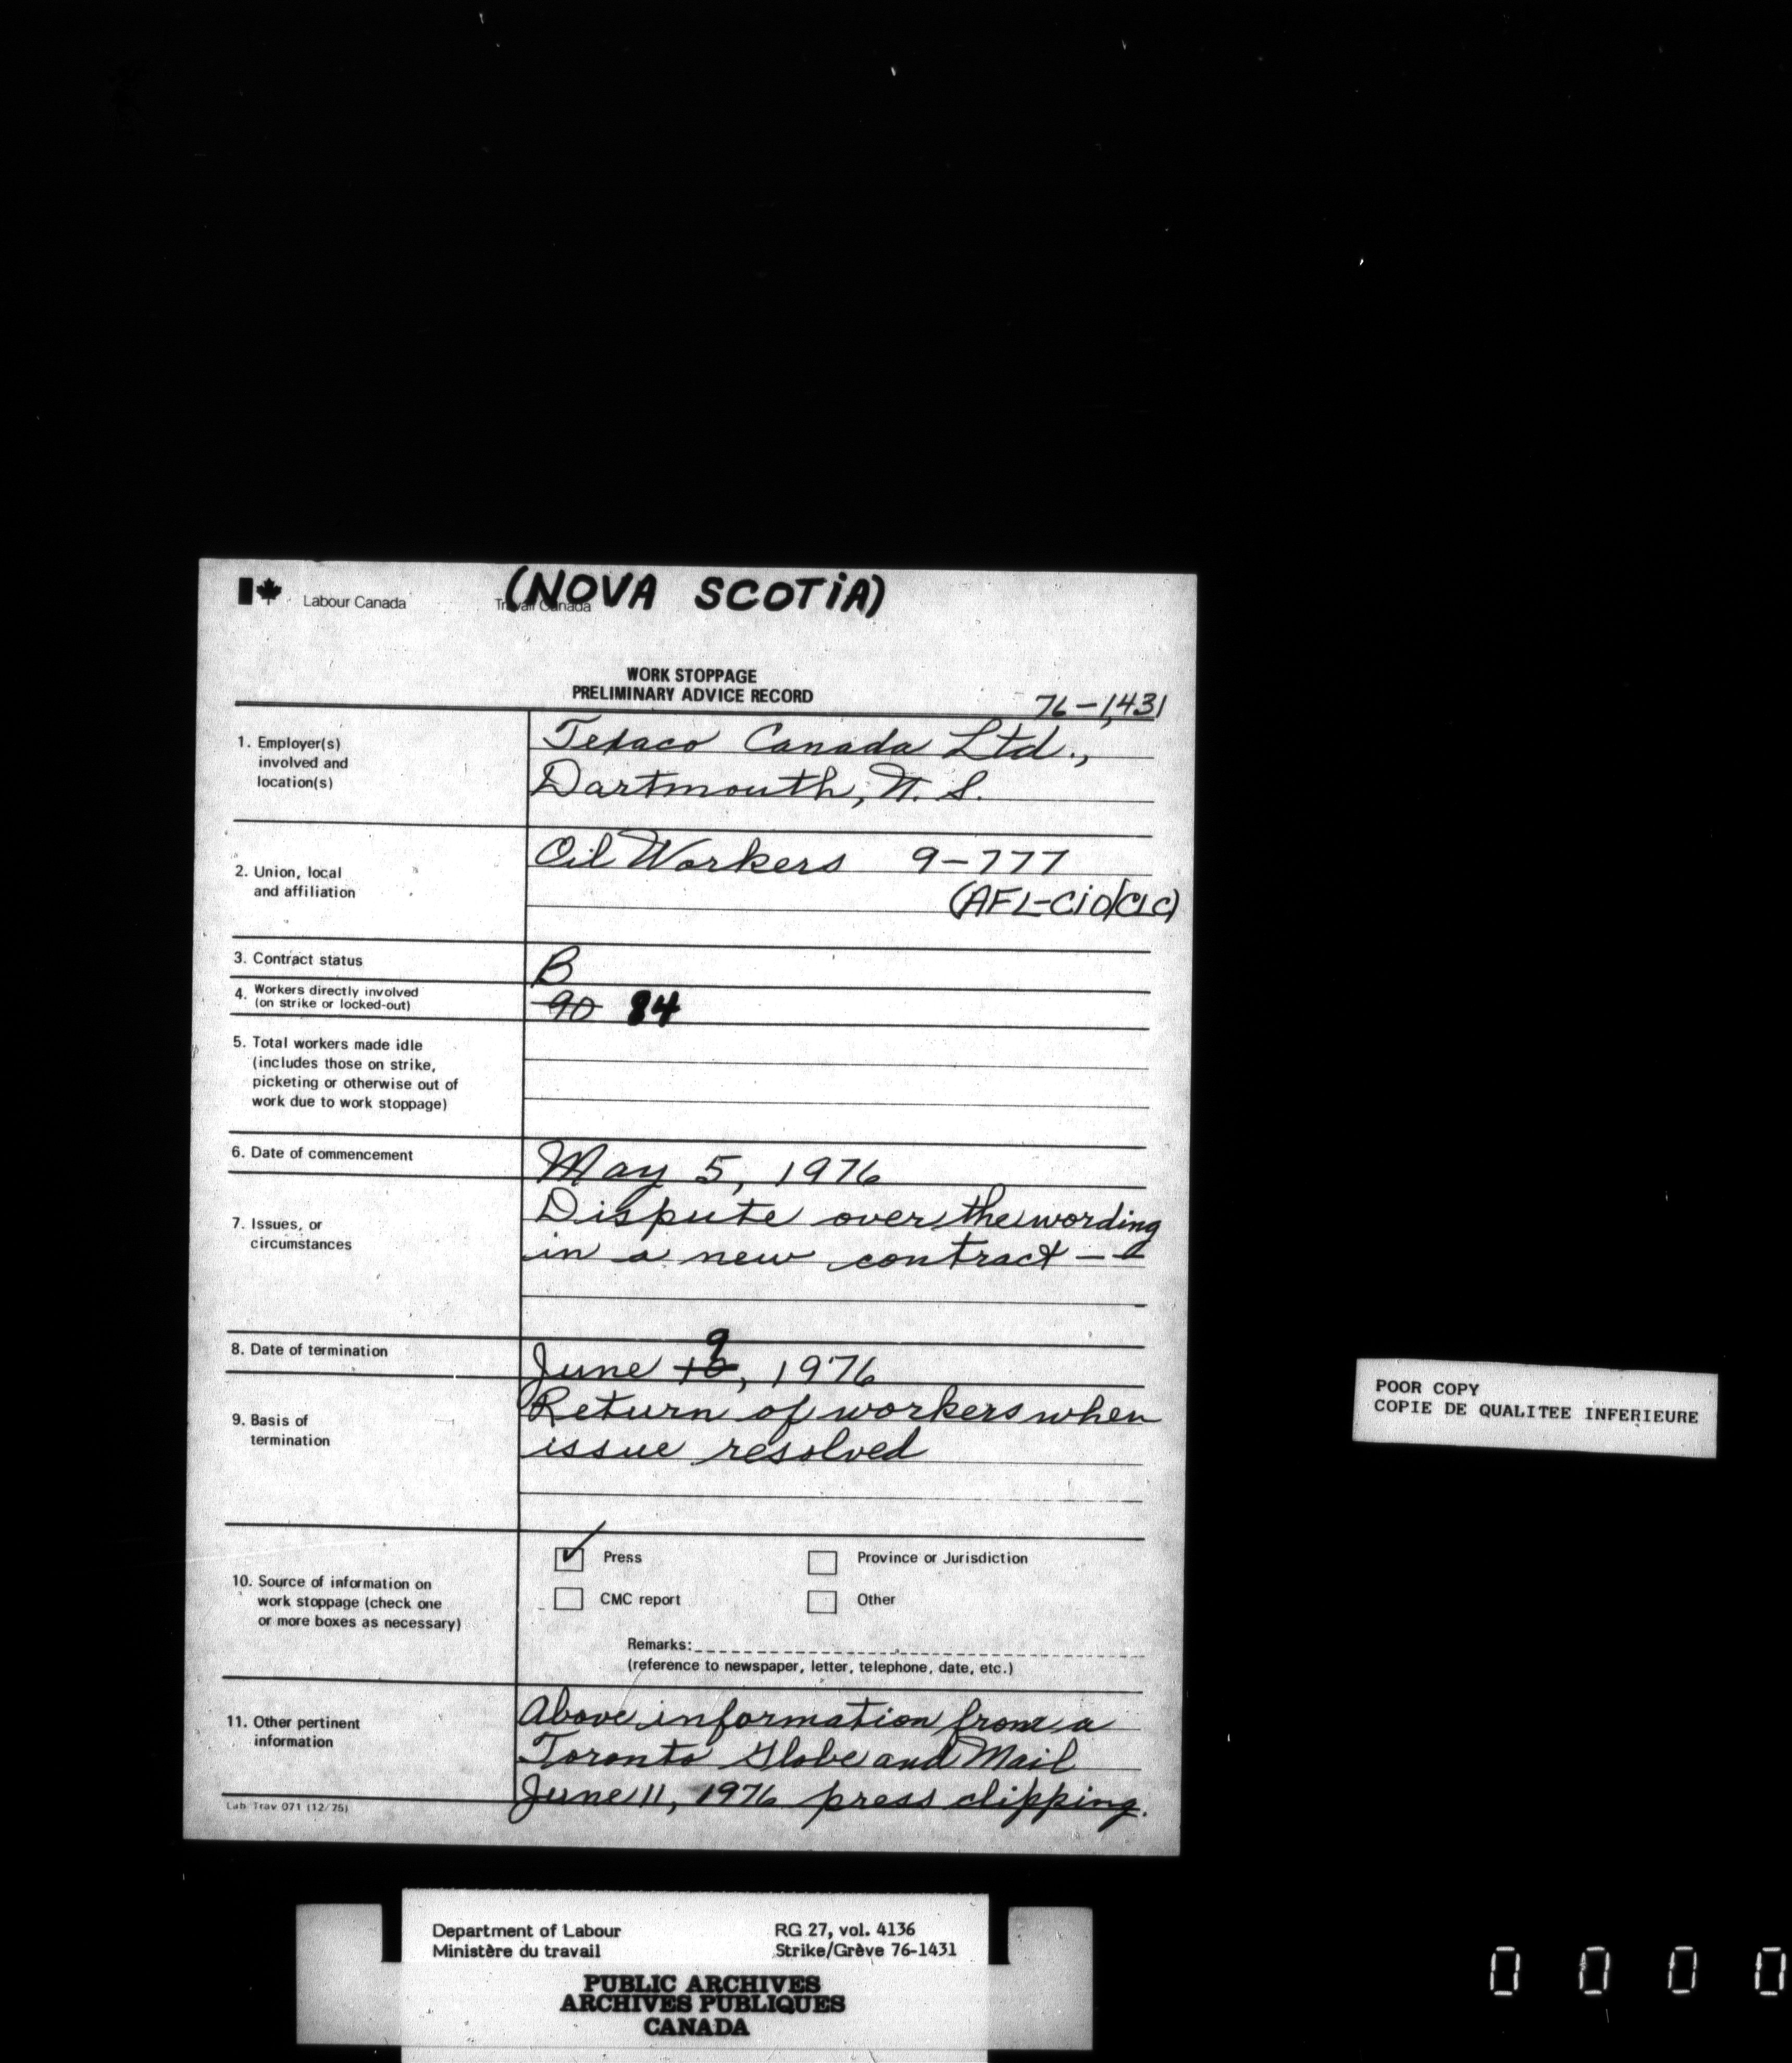 (NOVA SCOTiA)
Labour Canada Travail Canada
WORK STOPPAGE
PRELIMINARY ADVICE RECORD
76-1431
1. Employer(s)
involved and
location(s)
Texaco Canada Ltd.,
Dartmouth, N. S.
2. Union, local
and affiliation
Oil Workers 9-777
(AFL-CiO/CLC)
3. Contract status
B
4. Workers directly involved
(on strike or locked-out)
90 84
5. Total workers made idle
(includes those on strike,
picketing or otherwise out of
work due to work stoppage)
6. Date of commencement
May 5, 1976
7. Issues, or
circumstances
Dispute over the wording
in a new contract -
8. Date of termination
9
June 10, 1976
9. Basis of
termination
Return of workers when
issue resolved
10. Source of information on
work stoppage (check one
or more boxes as necessary)
Press
Province or Jurisdiction
CMC report
Other
Remarks:
(reference to newspaper, letter, telephone, date, etc.)
11. Other pertinent
information
Above information from a
Toronto Globe and Mail
June 11, 1976 press clipping.
Lab Trav 071 (12/75)
POOR COPY
COPIE DE QUALITEE INFERIEURE
Department of Labour
Ministère du travail
RG 27, vol. 4136
Strike/Grève 76-1431
PUBLIC ARCHIVES
ARCHIVES PUBLIQUES
CANADA
0 0 0 0